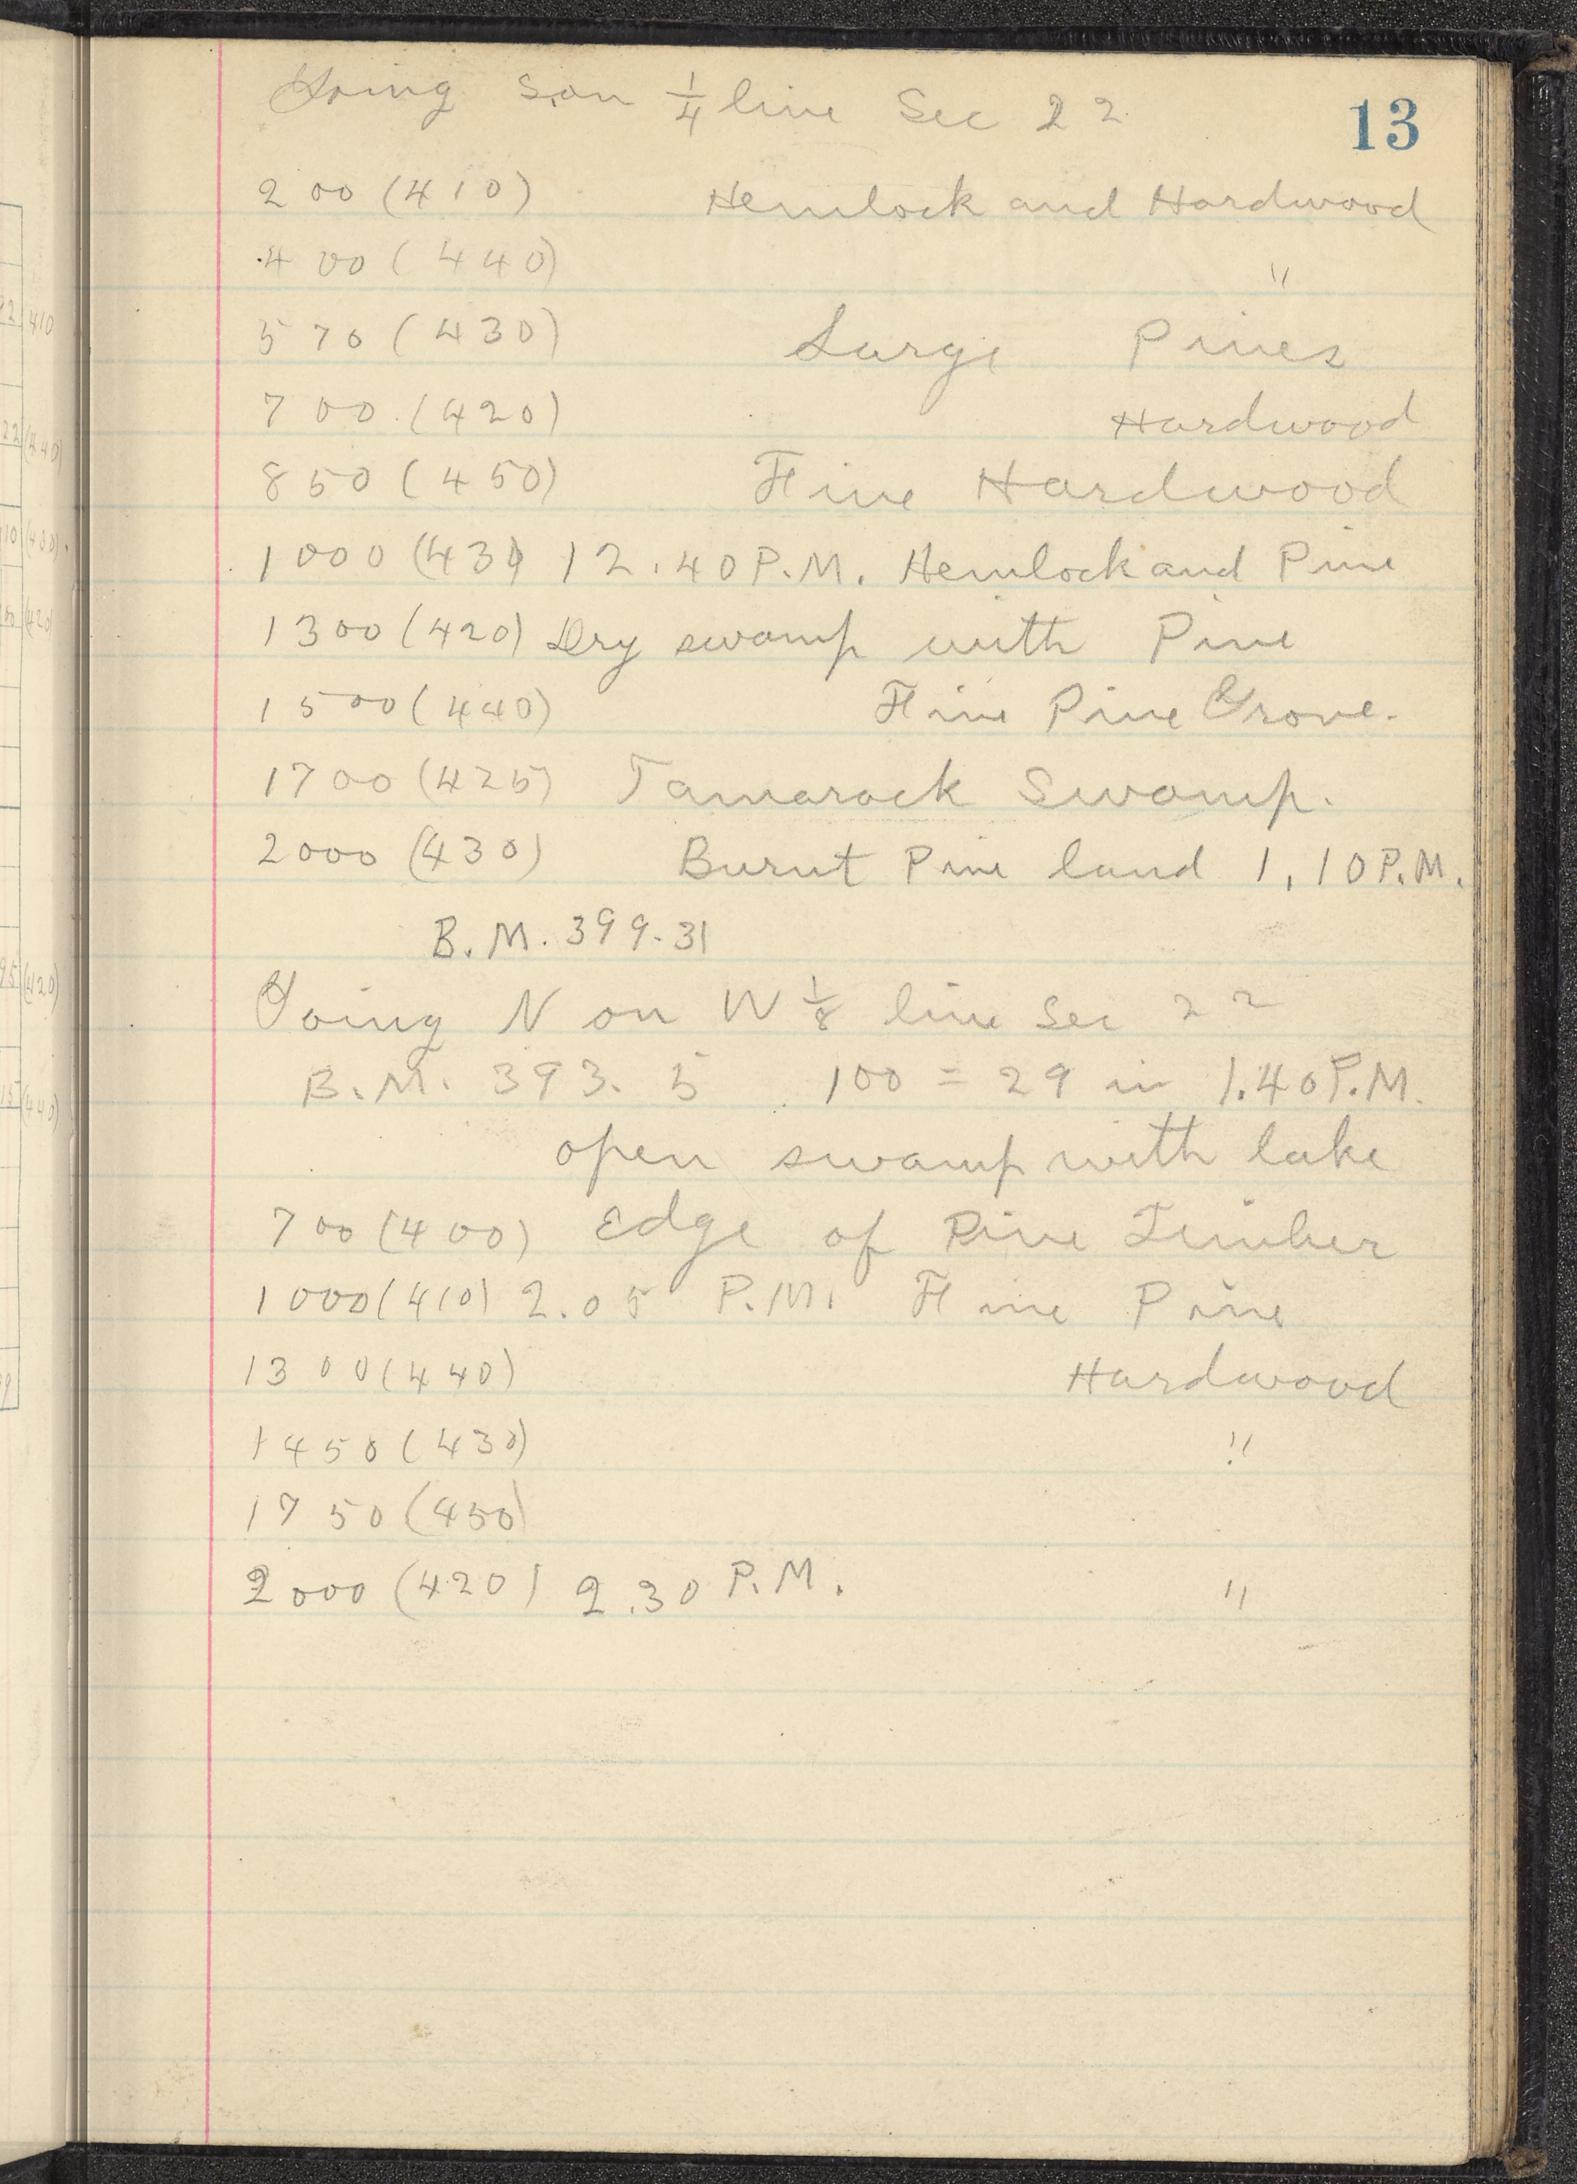 13
Going S. on 1/4 line Sec 22
200 (410) Hemlock and Hardwood
400 (440) "
570 (430) Large Pines
700 (420) Hardwood
850 (450) Fine Hardwood
1000 (430) 12.40 P.M. Hemlock and Pine
1300 (420) Dry swamp with Pine
1500 (440) Fine Pine Grove.
1700 (425) Tamarack Swamp.
2000 (430) Burnt Pine land 1,10 P.M.
B.M. 399.31
Going N on W 1/8 line Sec 22
B.M. 393.5 100 = 29 in 1.40 P.M.
open swamp with lake
700 (400) Edge of Pine Timber
1000 (410) 2.05 P.M. Fine Pine
1300 (440) Hardwood
1450 (430) "
1750 (450)
2000 (420) 2.30 P.M. "